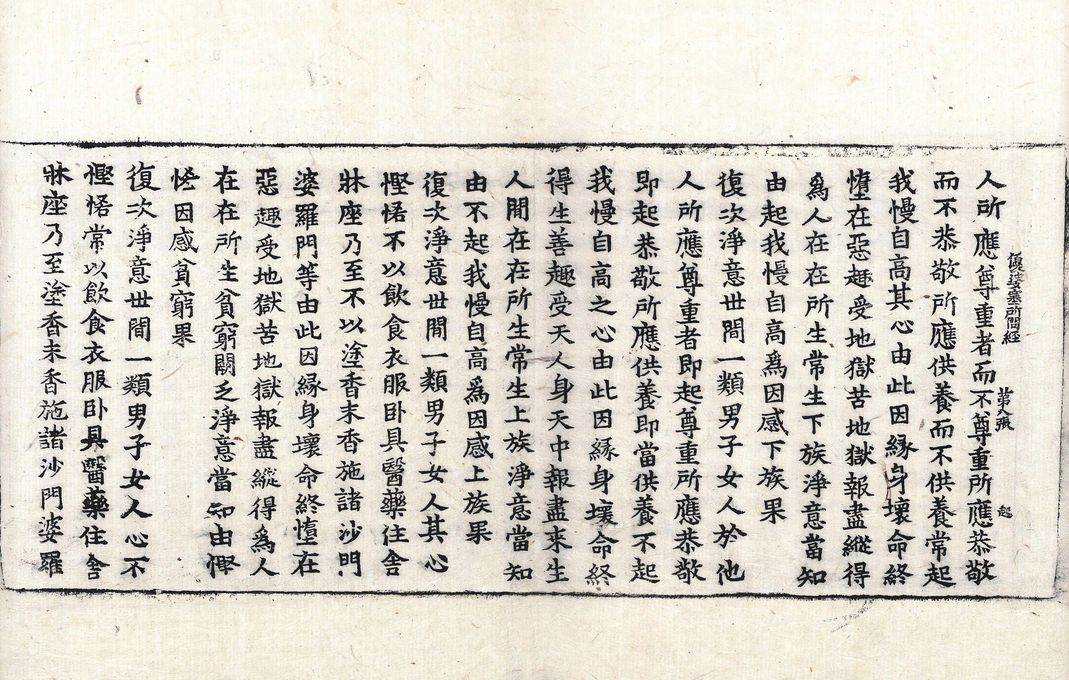 優婆塞所問經 第八張 起
人所應尊重者而不尊重所應恭敬
而不恭敬所應供養而不供養常起
我慢自高其心由此因緣身壞命終
墮在惡趣受地獄苦地獄報盡縱得
爲人在在所生常生下族淨意當知
由起我慢自高爲因感下族果
復次淨意世閒一類男子女人於他
人所應尊重者即起尊重所應恭敬
即起恭敬所應供養即當供養不起
我慢自高之心由此因緣身壞命終
得生善趣受天人身天中報盡來生
人閒在在所生常生上族淨意當知
由不起我慢自高爲因感上族果
復次淨意世閒一類男子女人其心
慳悋不以飮食衣服卧具醫藥住舎
牀座乃至不以塗香末香施諸沙門
婆羅門等由此因緣身壞命終墮在
惡趣受地獄苦地獄報盡縱得爲人
在在所生貧窮闕乏淨意當知由慳
悋因感貧窮果
復次淨意世閒一類男子女人心不
慳悋常以飮食衣服卧具醫藥住舎
牀座乃至塗香末香施諸沙門婆羅